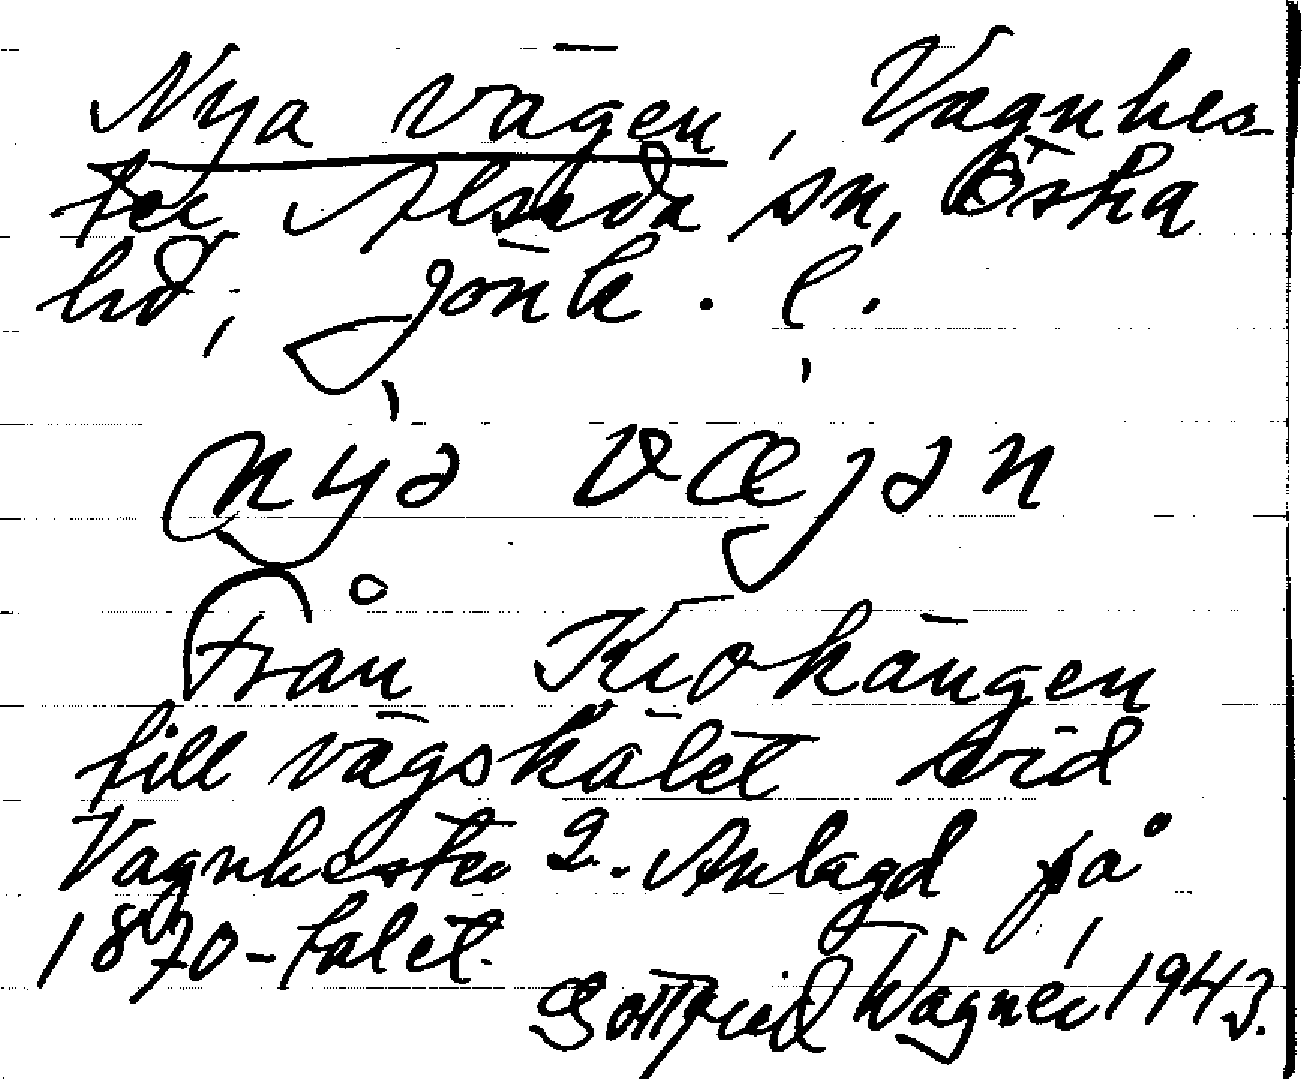 Nya vägen, Vagnhes-
ter Alseda sn, Östra
hd, Jönk. l.
nya væjən
Från Krokängen
till vägskälet vid
Vagnhester 2. Anlagd på
1870-talet.
Gottfrid Wagnér 1943.